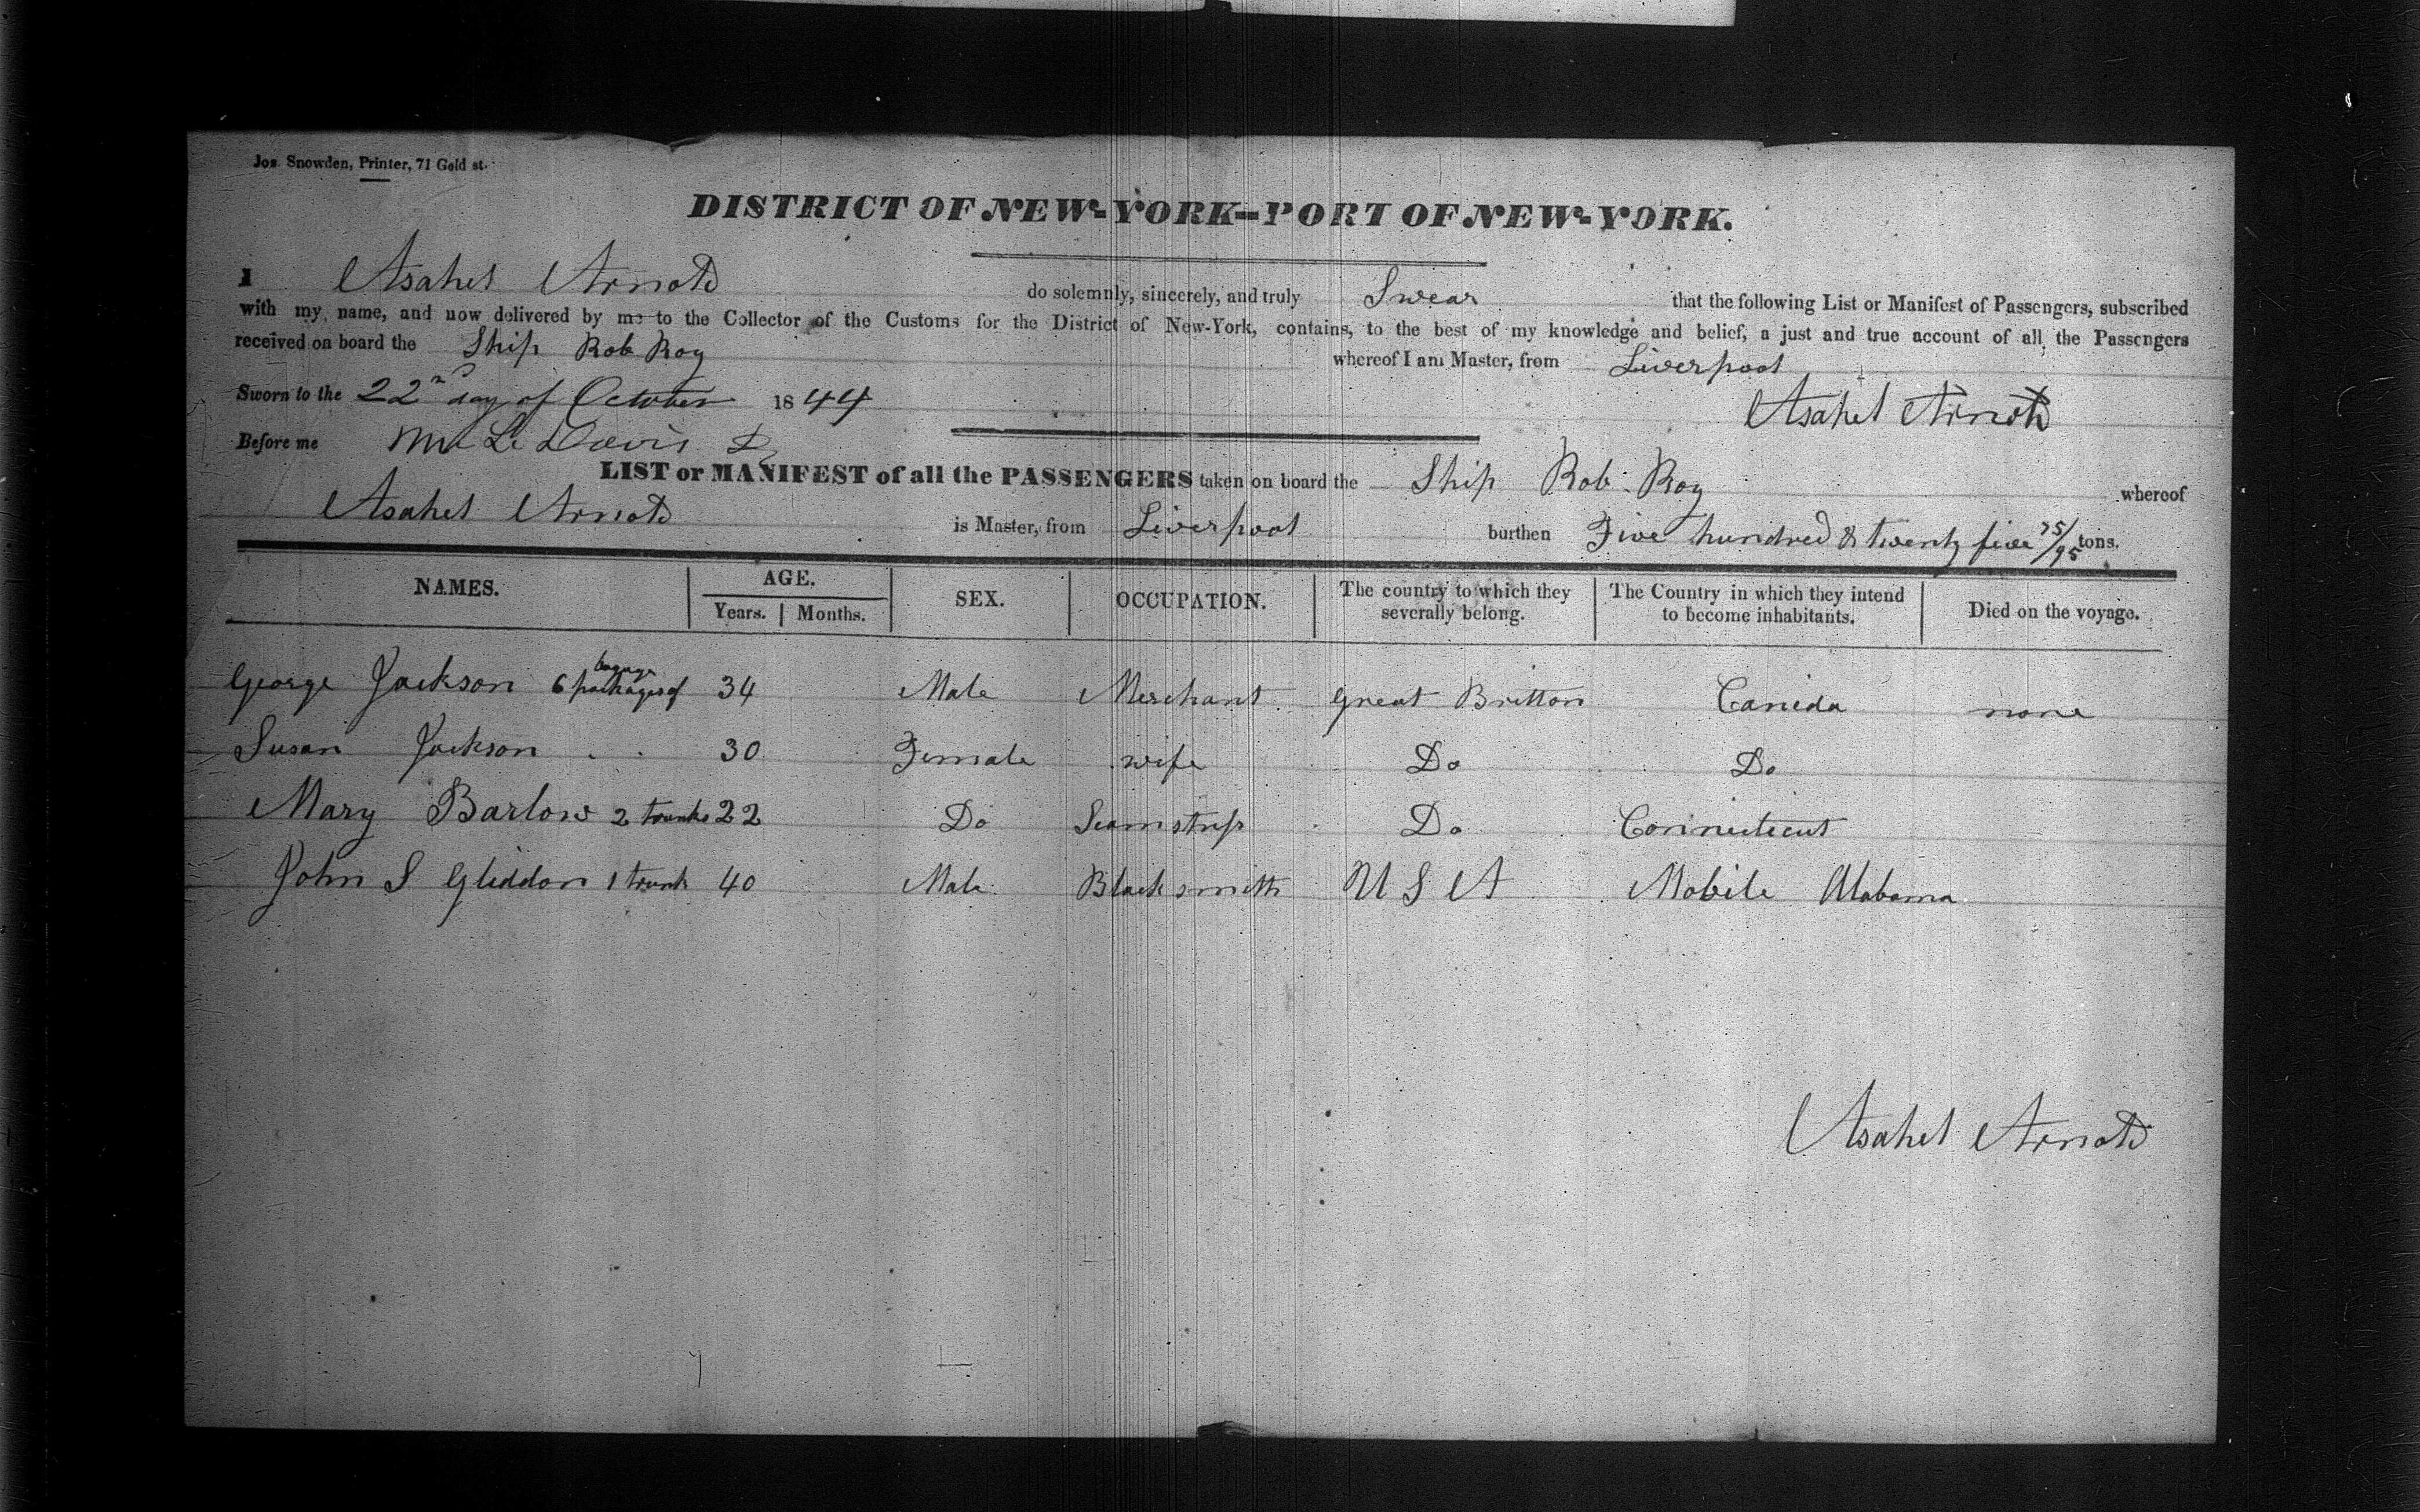 Jos. Snowden, Printer, 71 Gold st.
DISTRICT OF NEW-YORK--PORT OF NEW-YORK.
I Asahel Arnold do solemnly, sincerely, and truly Swear that the following List or Manifest of Passengers, subscribed
with my name, and now delivered by me to the Collector of the Customs for the District of New-York, contains, to the best of my knowledge and belief, a just and true account of all the Passengers
received on board the Ship Rob Roy whereof I am Master, from Liverpool
Sworn to the 22nd day of October 1844
Asahel Arnold
Before me Davis
LIST or MANIFEST of all the PASSENGERS taken on board the Ship Rob Roy whereof
Asahel Arnold is Master, from Liverpool burthen Five hundred & twenty five 75/95 tons.
NAMES. AGE. SEX. OCCUPATION. The country to which they severally belong. The Country in which they intend to become inhabitants. Died on the voyage.
Years. Months.
George Jackson 6 packages of bagage 34 Male Merchant Great Britton Canida none
Susan Jackson 30 Female wife Do Do
Mary Barlow 2 trunks 22 Do Seamstress Do Connecticut
John S Gliddon 1 trunk 40 Male Black smith U S A Mobile Alabama
Asahel Arnold